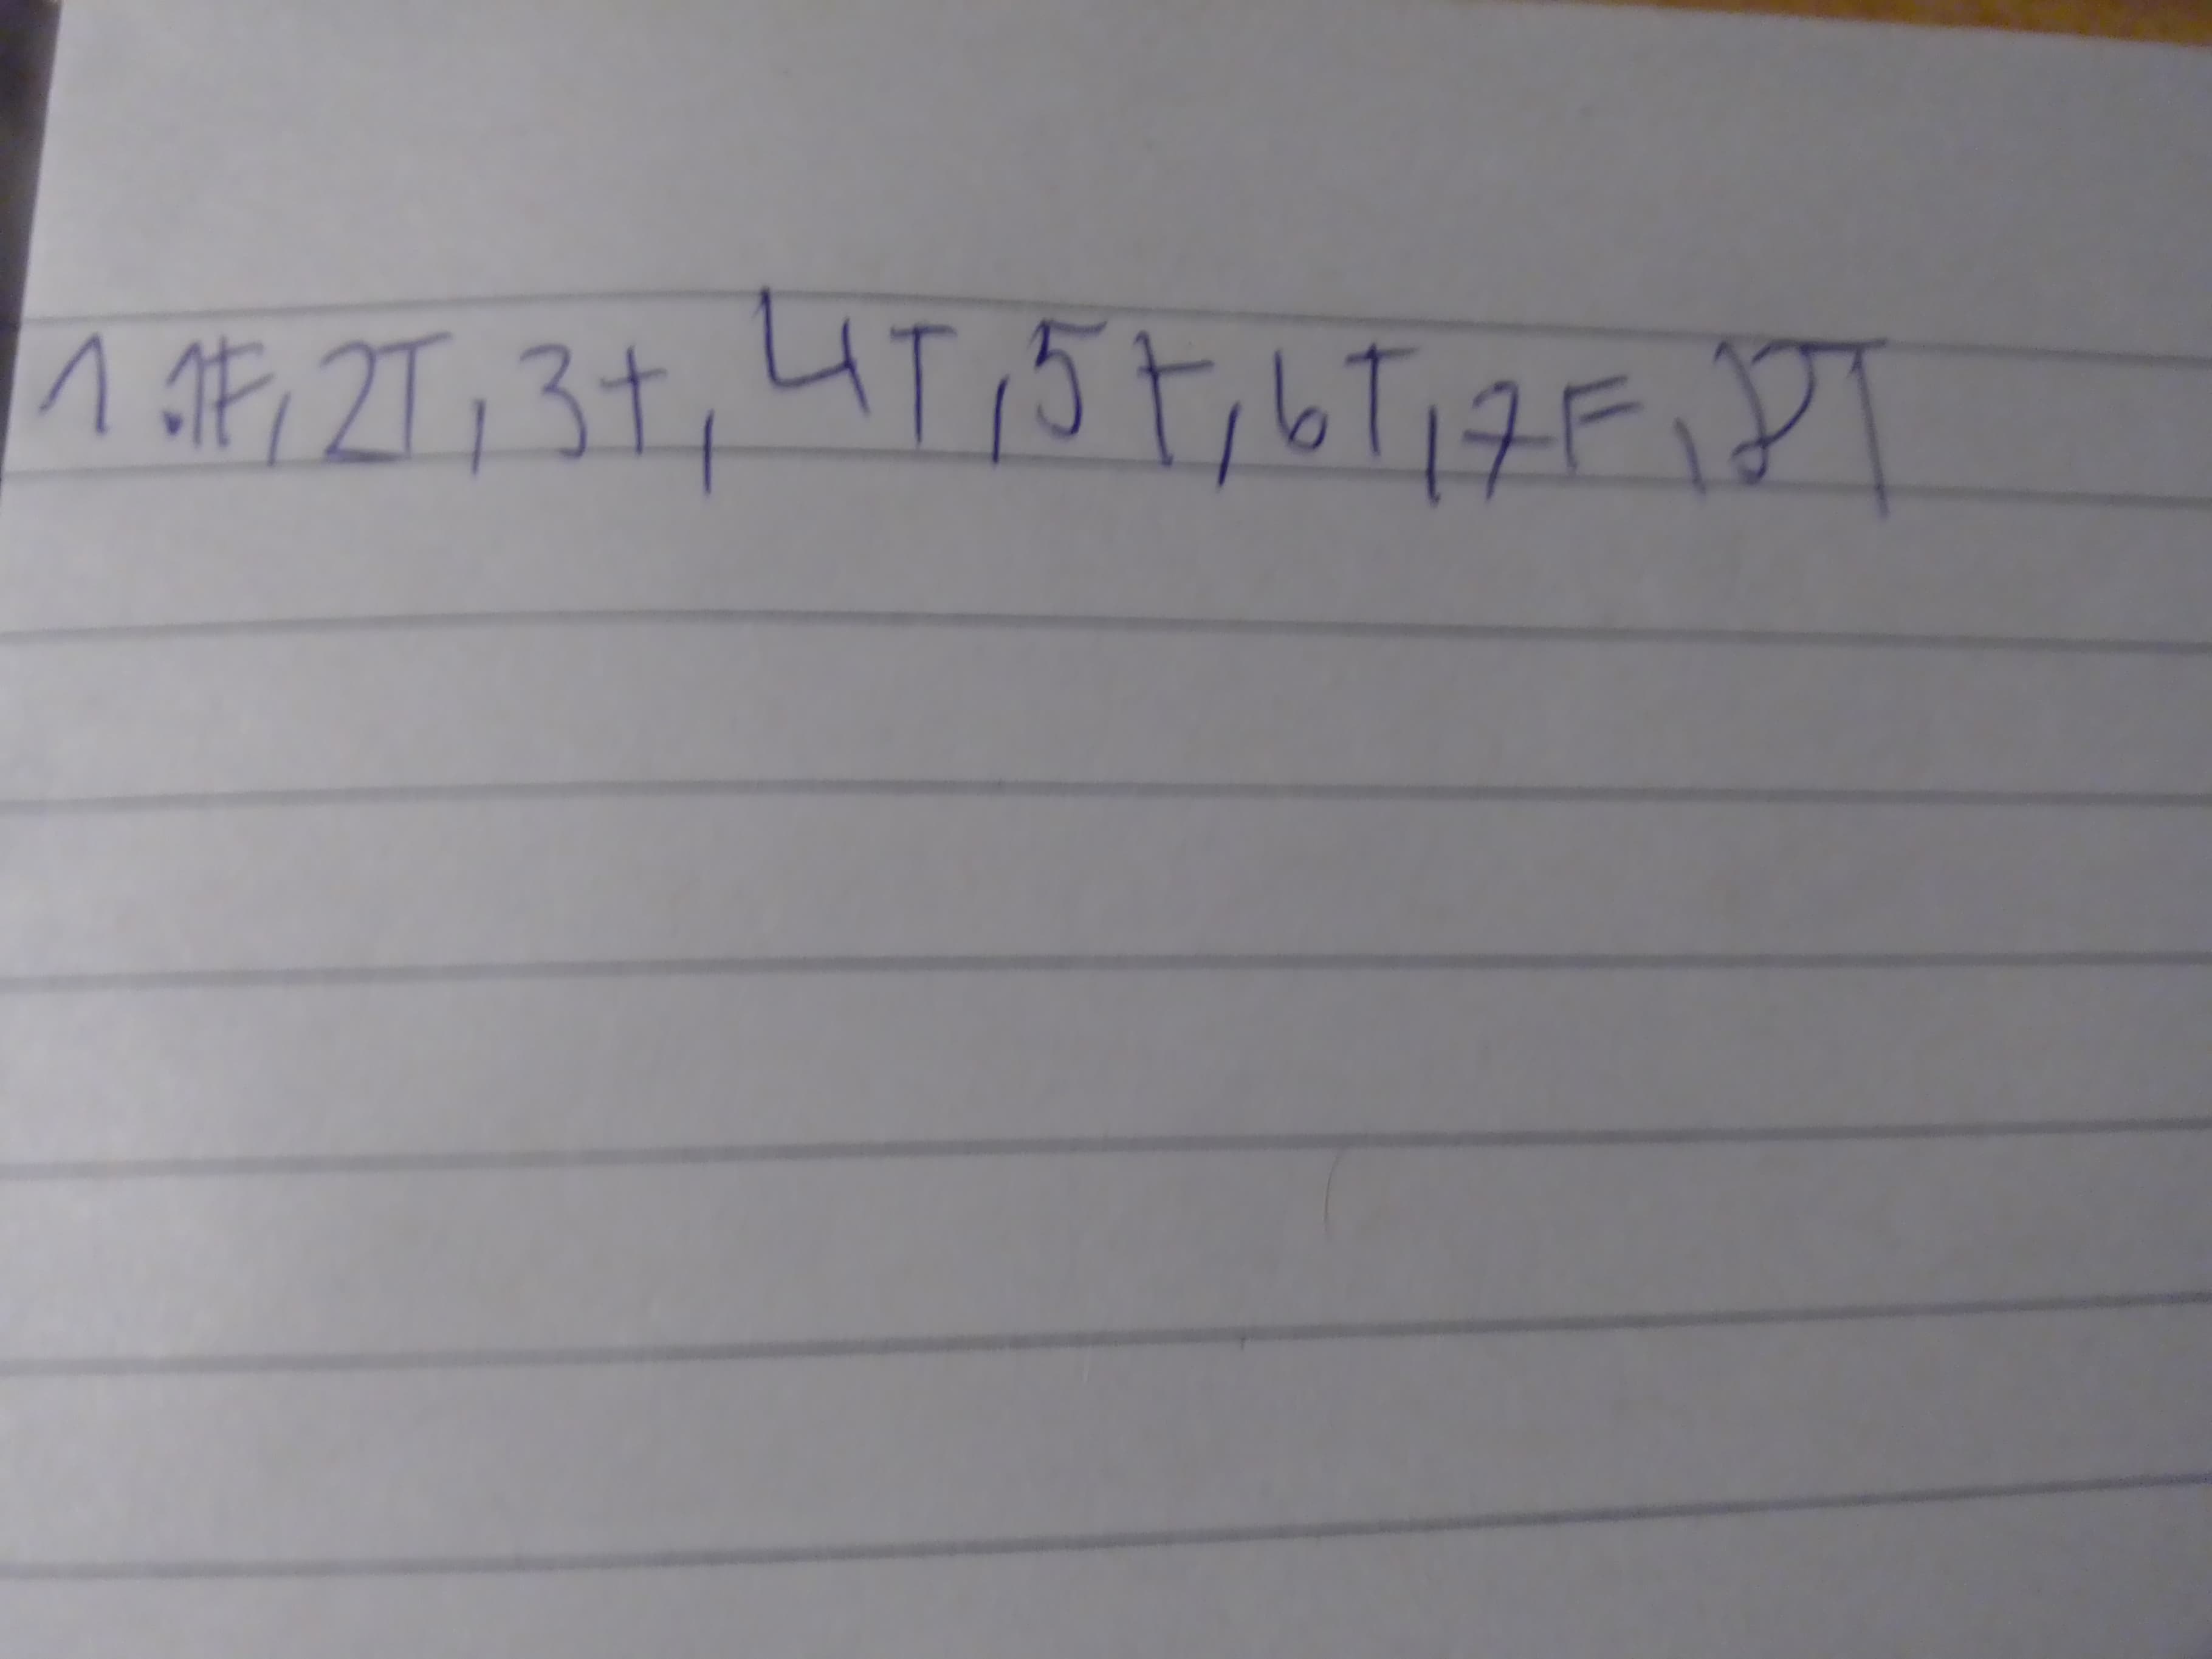 1. 1F, 2T, 3t, 4T, 5t, 6T, 7F, 8T